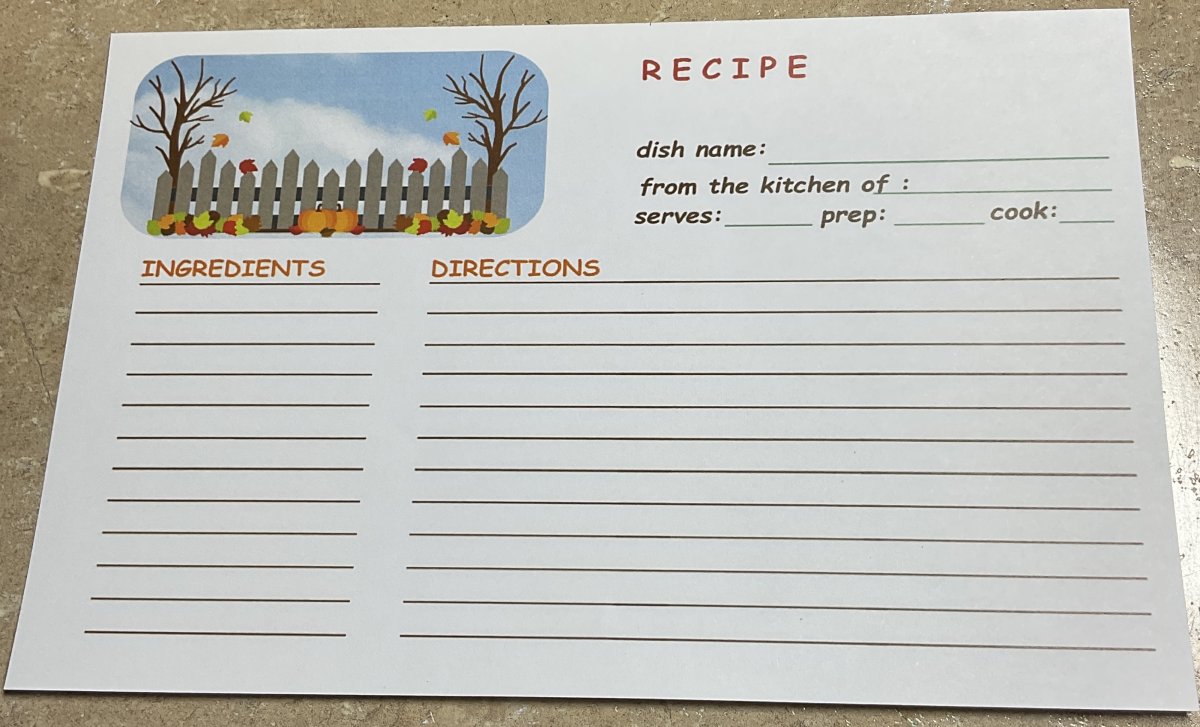 RECIPE
dish name:
from the kitchen of :
serves: prep: cook:
INGREDIENTS
DIRECTIONS